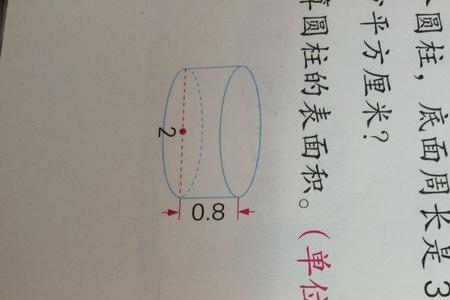 圆柱，底面周长是3
平方厘米?
算圆柱的表面积。(单位
2
0.8